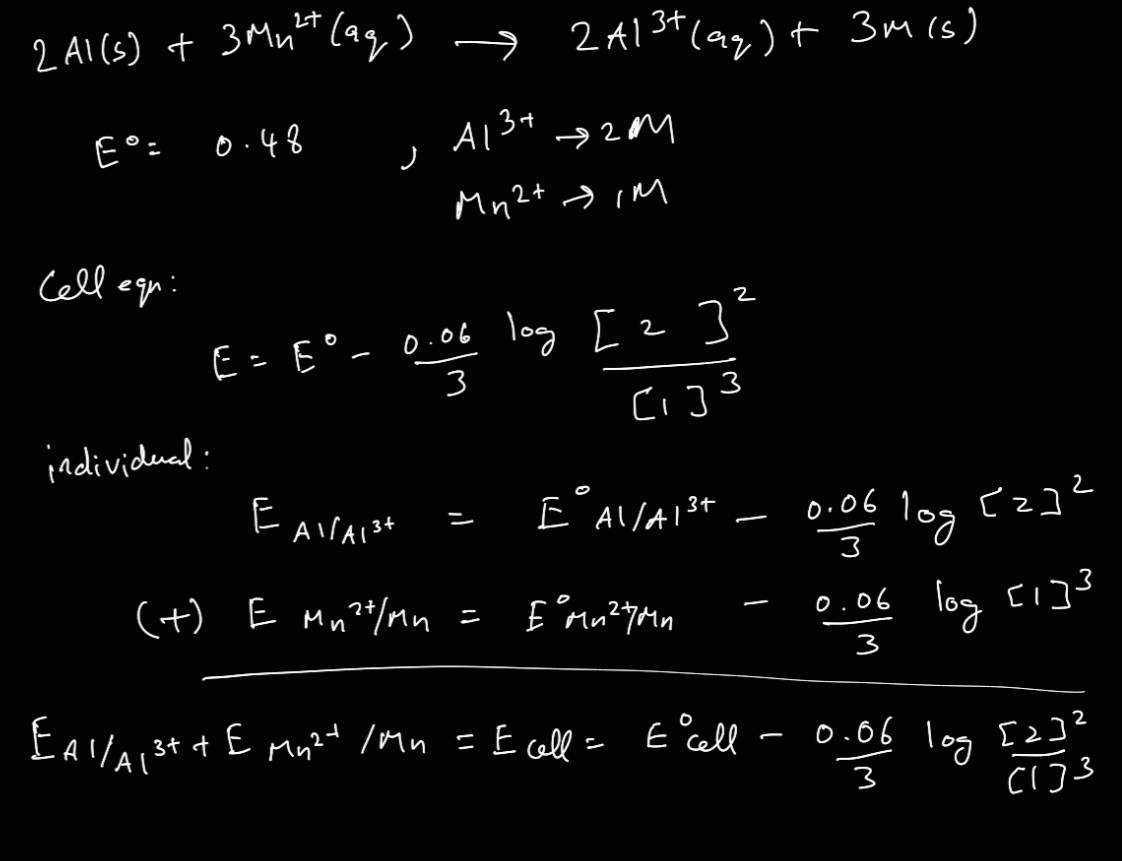 2 Al(s) + 3Mn²⁺(aq) → 2Al³⁺(aq) + 3M(s)
E° = 0.48 , Al³⁺ → 2M
Mn²⁺ → 1M
Cell eqn:
E = E° - 0.06/3 log [2]²/[1]³
individual:
E Al/Al³⁺ = E° Al/Al³⁺ - 0.06/3 log [2]²
(+) E Mn²⁺/Mn = E° Mn²⁺/Mn - 0.06/3 log [1]³
E Al/Al³⁺ + E Mn²⁺/Mn = E cell = E° cell - 0.06/3 log [2]²/[1]³